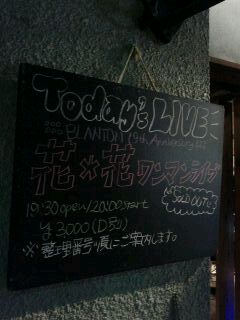 Today's LIVE
PLANT01 19th Anniversary
花*花 ワンマンライブ
SOLD OUT
19:30 open / 20:00 start
¥3000 (D別)
※整理番号順にご案内します。